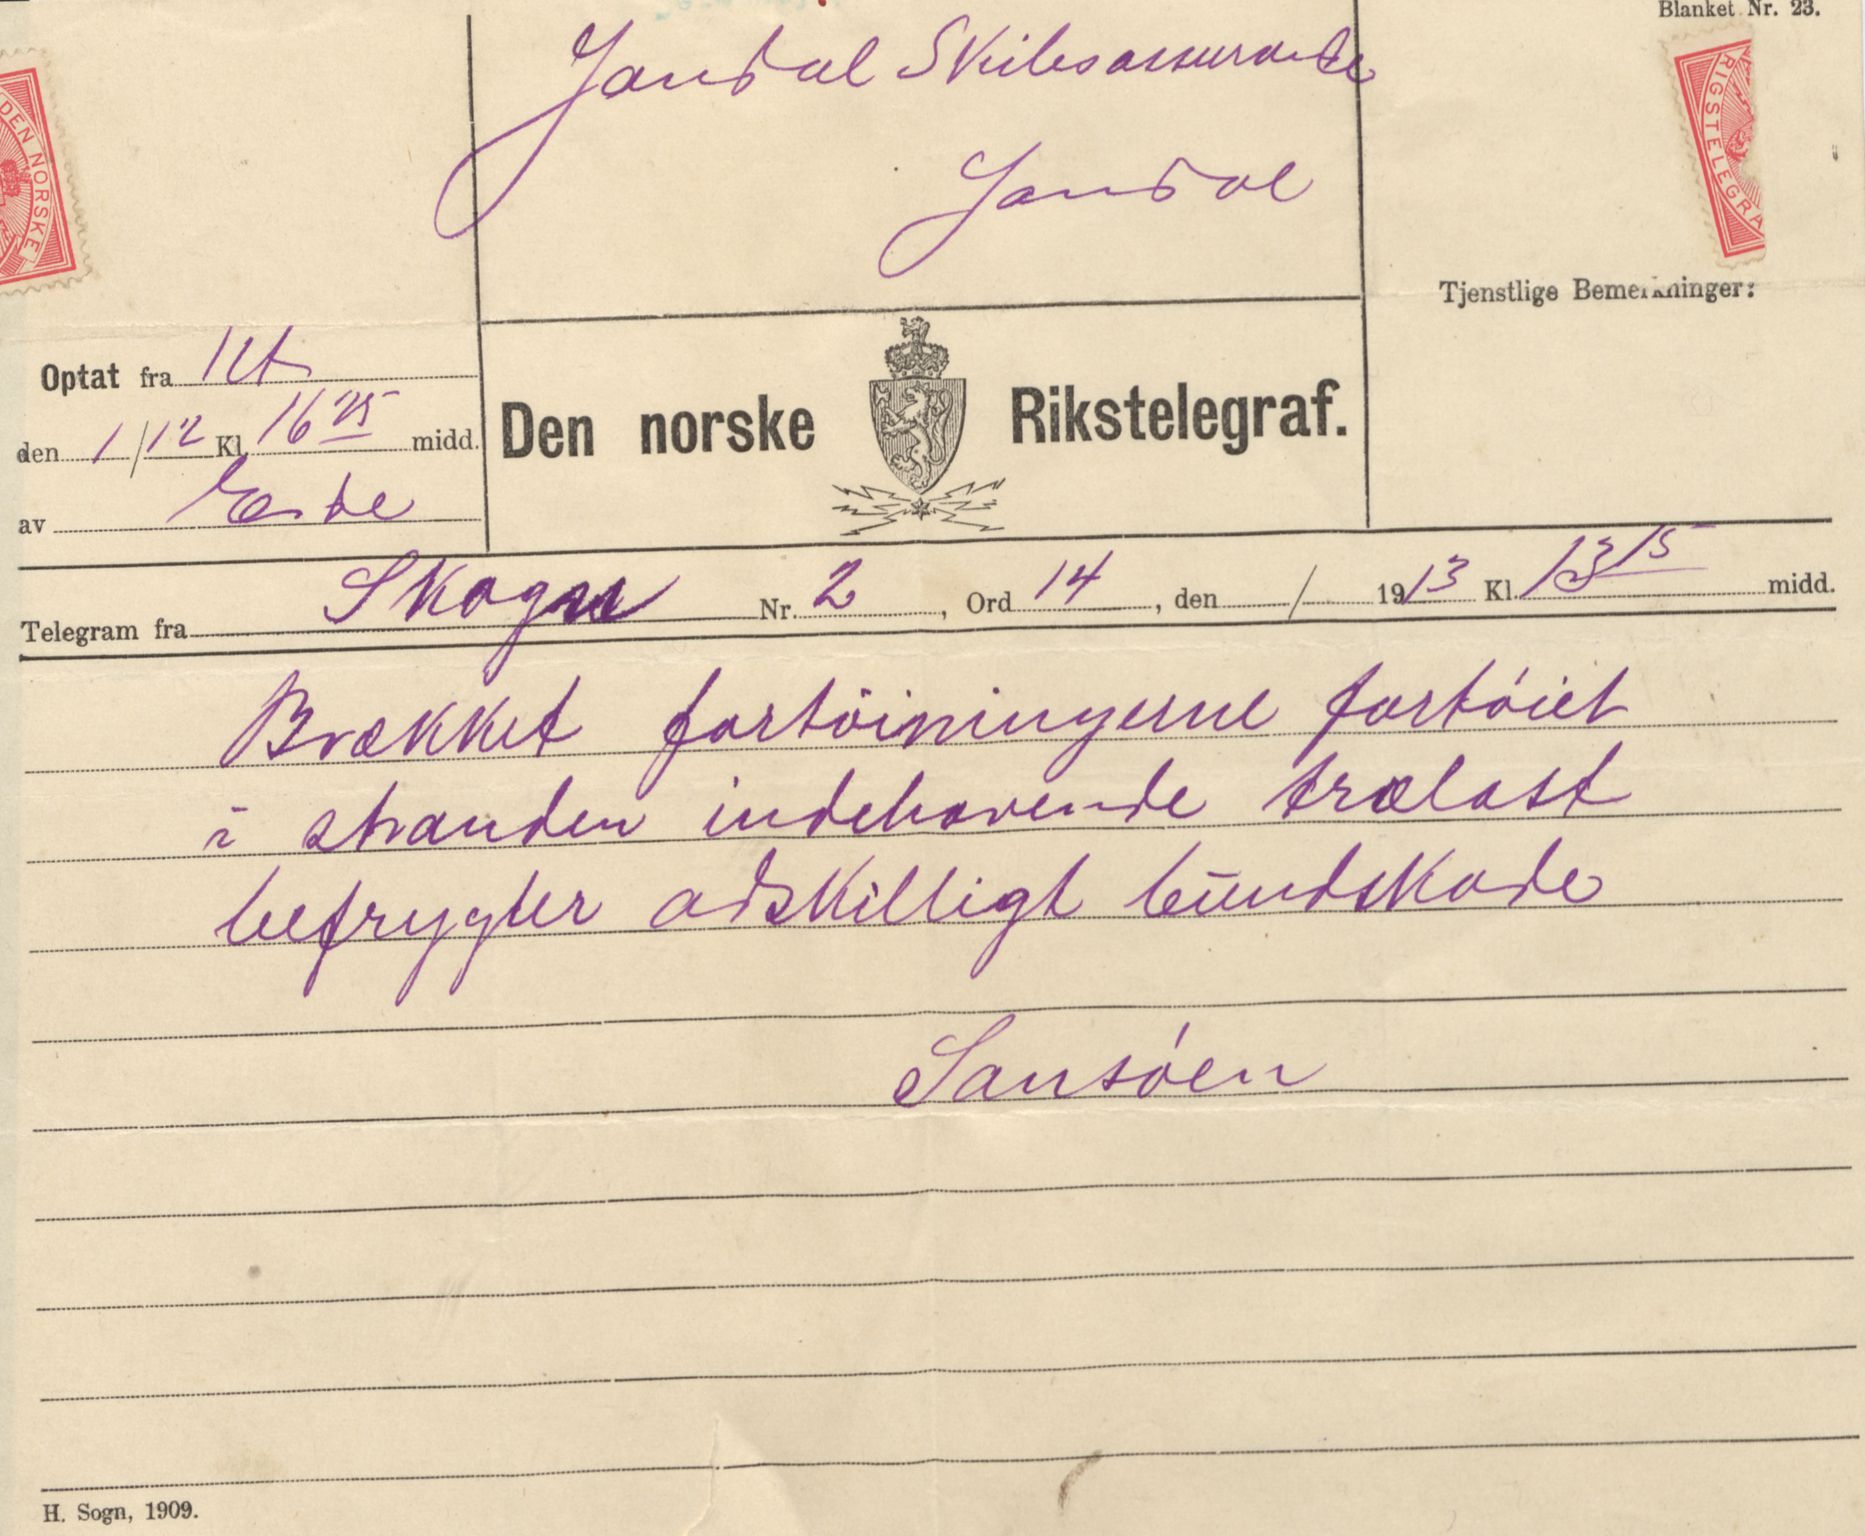 Blanket Nr. 23.
Jondal Skibsassurance
Jondal
DEN NORSKE
RIGSTELEGRA
Tjenstlige Bemerkninger:
Optat fra
den 1/12 Kl. 16 25 midd.
av
Den norske Rikstelegraf.
Telegram fra Skogn Nr. 2, Ord 14, den / 1913 Kl. 13 15 midd.
Brækket fortöiningerne fortóiet
i stranden indehavende trælast
befrygter adskilligt bundskade
Sansóen
H. Sogn, 1909.